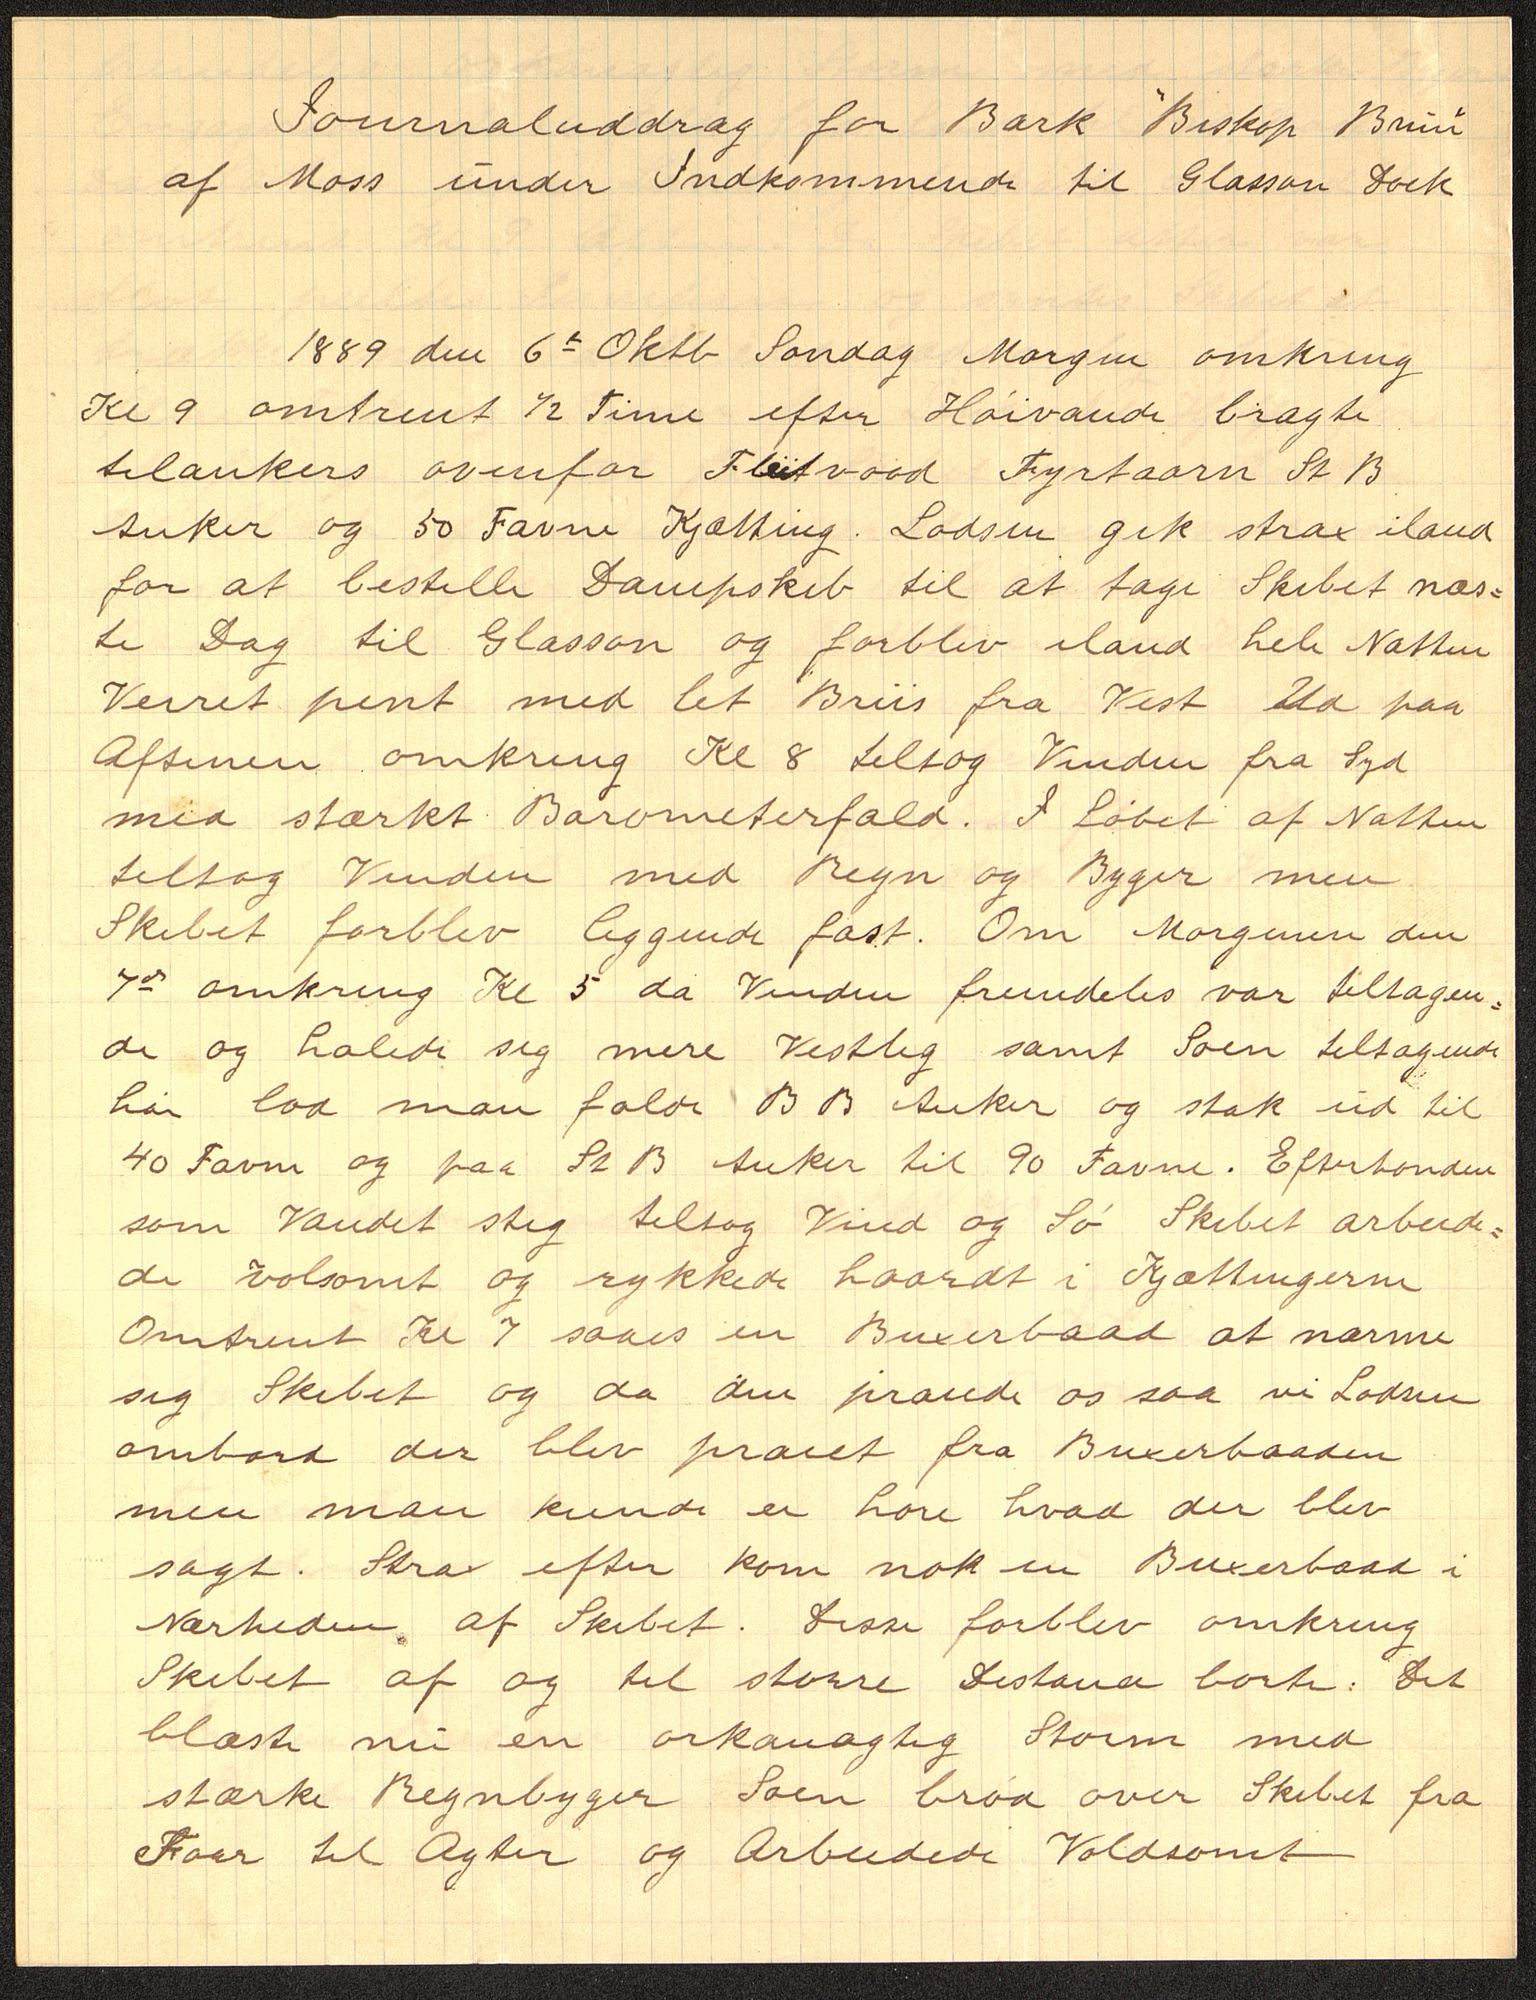 Journaluddrag for Bark "Biskop Brun"
af Moss under Indkommende til Glasson Dock
1889 den 6te Oktb Søndag Morgen omkring
Kl 9 omtrent 1/2 Time efter Høivande bragte
tilankers ovenfor Fleetvood Fyrtaarn St B
Anker og 50 Favne Kjætting. Lodsen gik strax iland
for at bestille Dampskib til at tage Skibet næs=
te Dag til Glasson og forblev iland hele Natten
Veiret pent med let Briis fra Vest Ud paa
Aftenen omkring Kl 8 tiltog Vinden fra Syd
med stærkt Barometerfald. I Løbet af Natten
tiltog Vinden med Regn og Byger men
Skibet forblev liggende fast. Om Morgenen den
7de omkring Kl 5 da Vinden fremdeles var tiltagen=
de og halede sig mere Vestlig samt Søen tiltagende
lod man falde B B Anker og stak ud til
40 Favne og paa St B Anker til 90 Favne. Efterhanden
som Vandet steg tiltog Vind og Sø Skibet arbeide=
de volsomt og rykkede haardt i Kjættingerne
Omtrent Kl 7 saaes en Buxerbaad at nærme
sig Skibet og da den praiede os saa vi Lodsen
ombord der blev praiet fra Buxerbaaden
men man kunde ei høre hvad der blev
sagt. Strax efter kom nok en Buxerbaad i
Nærheden af Skibet. Disse forblev omkring
Skibet af og til større Distance borte. Det
blæste nu en orkanagtig Storm med
stærke Regnbyger Søen brød over Skibet fra
For til Agter og Arbeidede Voldsomt